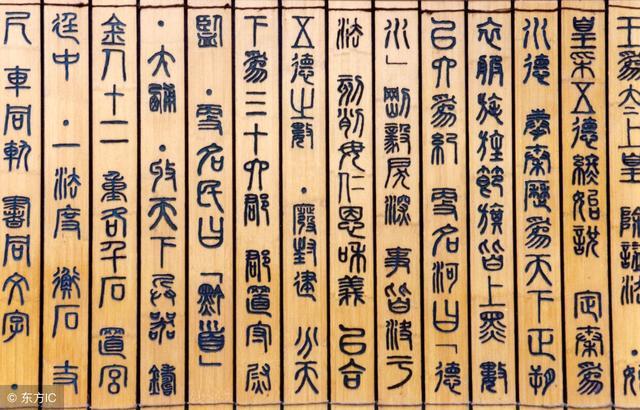 王爲太上皇 除謚法 ·始
皇采五德終始說 定秦爲
水德 奉秦歷爲天下正朔
衣服旄旌節旗皆上黑 數
以六爲紀 更名河曰「德
水」 剛毅戾深 事皆決于
法 刻削毋仁恩和義 以合
五德之數 ·廢封建 分天
下爲三十六郡 郡置守尉
監 ·更名民曰「黔首」
·大酺 ·收天下兵器 鑄
金人十二 重各千石 置宮
廷中 ·一法度 衡石 丈
尺 車同軌 書同文字 ·
© 东方IC